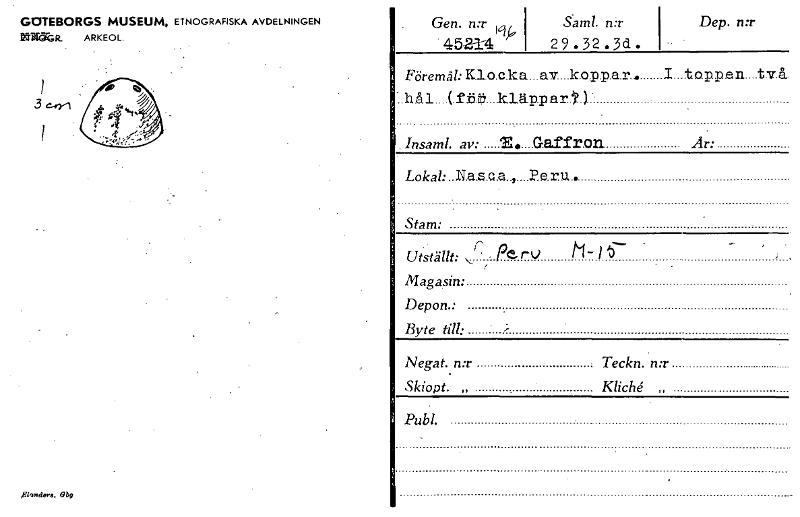 GÖTEBORGS MUSEUM, ETNOGRAFISKA AVDELNINGEN
ETNOGR. ARKEOL.
3 cm
Elanders, Gbg
Gen. n:r Saml. n:r Dep. n:r
45214 196 29.32.3d.
Föremål: Klocka av koppar. I toppen två
hål (för kläppar?)
Insaml. av: E. Gaffron År:
Lokal: Nasca, Peru.
Stam:
Utställt: Peru M-15
Magasin:
Depon.:
Byte till:
Negat. n:r Teckn. n:r
Skiopt. „ Kliché „
Publ.